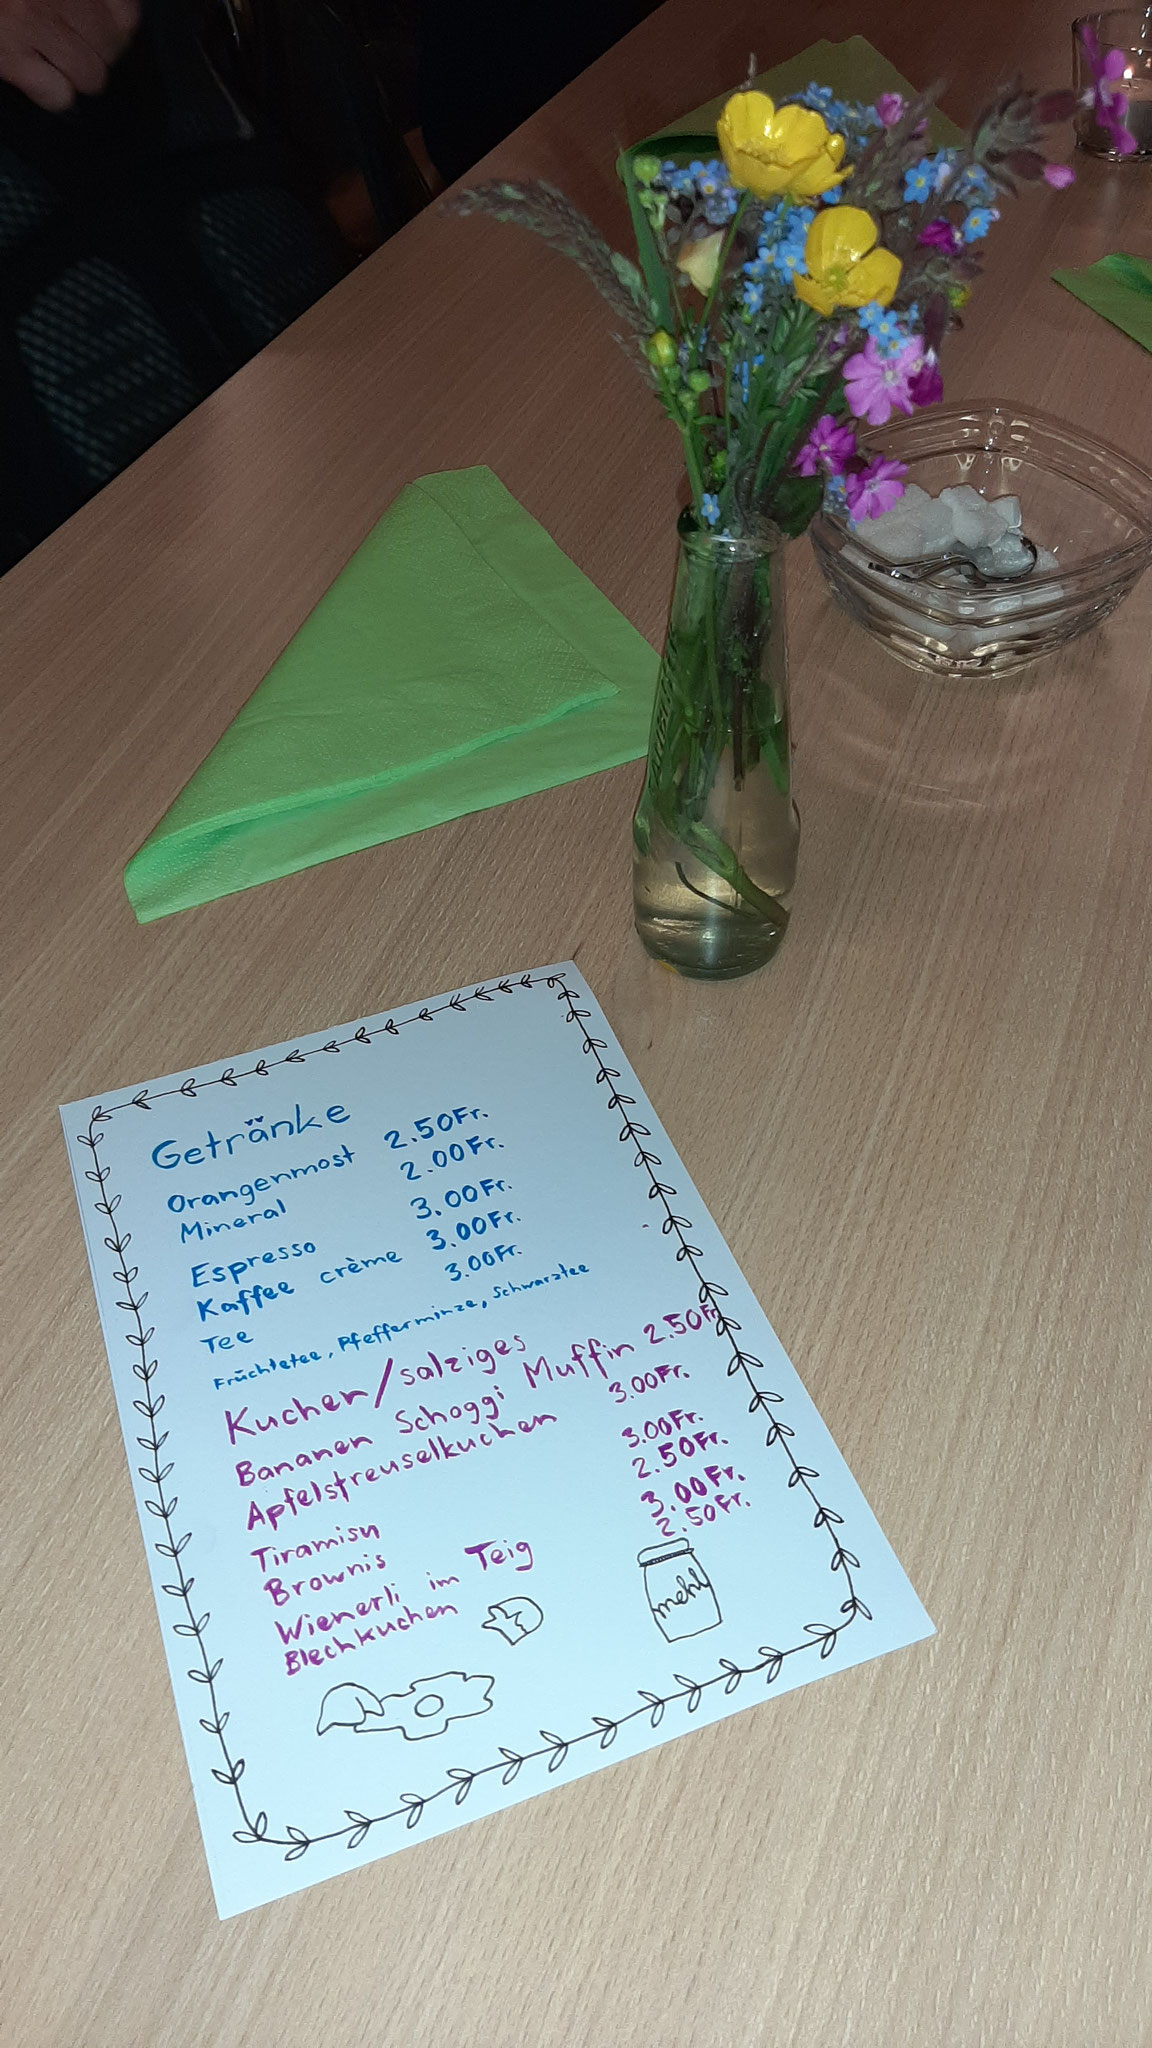 Getränke
Orangenmost 2.50Fr.
Mineral 2.00Fr.
Espresso 3.00Fr.
Kaffee crème 3.00Fr.
Tee 3.00Fr.
Früchtetee, Pfefferminze, Schwarztee
Kuchen/salziges
Bananen Schoggi Muffin 2.50Fr
Apfelstreuselkuchen 3.00Fr.
Tiramisu 3.00Fr.
Brownis 2.50Fr.
Wienerli im Teig 3.00Fr.
Blechkuchen 2.50Fr.
mehl